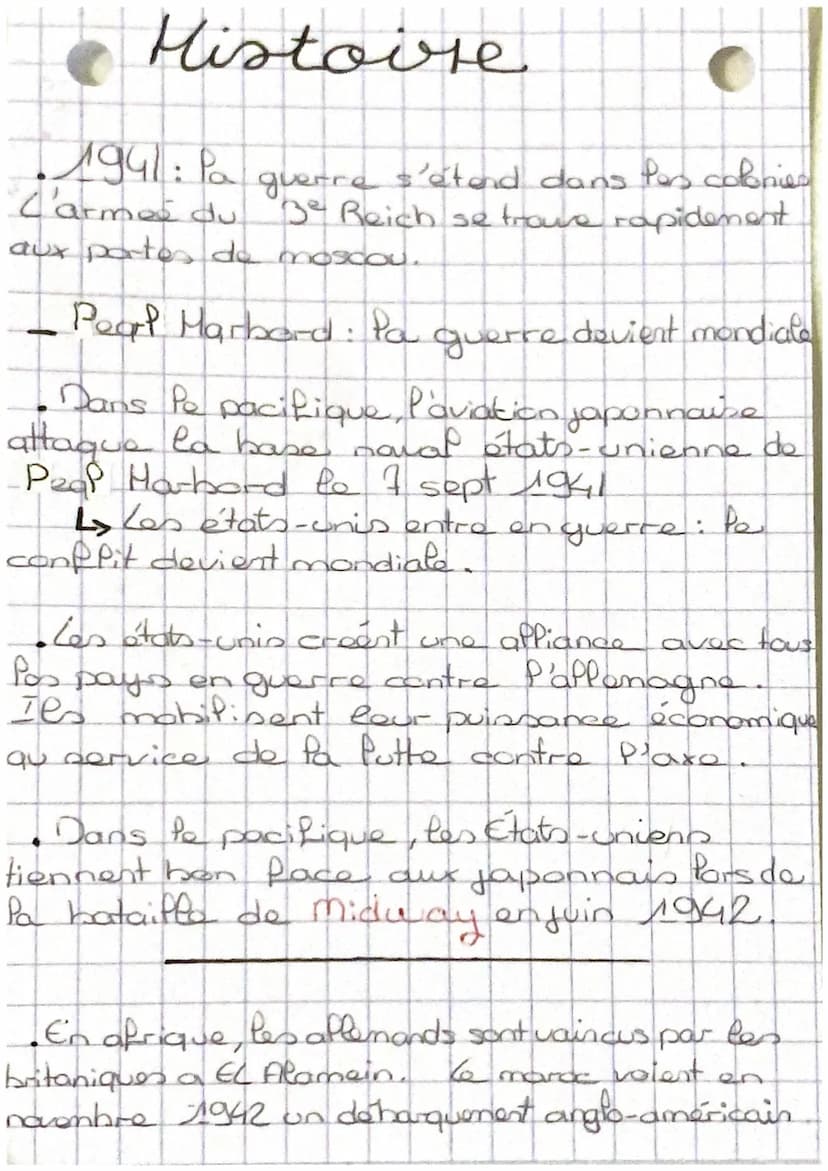 Histoire
. 1941 : la guerre s'étend dans les colonies
L'armeé du 3e Reich se trouve rapidement
aux portes de moscou.
_ Pearl Harbord : la guerre devient mondiale
. Dans le pacifique, l'aviation japonnaise
attaque la base naval états-unienne de
Peal Harbord le 7 sept 1941
↳ Les états-unis entre en guerre : le
conflit devient mondiale.
. Les états-unis creént une alliance avec tous
les pays en guerre contre l'allemagne.
Ils mobilisent leur puissance économique
au service de la lutte contre l'axe.
. Dans le pacifique, les États-uniens
tiennent bon face aux japonnais lors de
la bataille de Midway en juin 1942.
. En afrique, les allemands sont vaincus par les
britaniques a EL Alamein. Le maroc voient en
novembre 1942 un débarquement anglo-américain